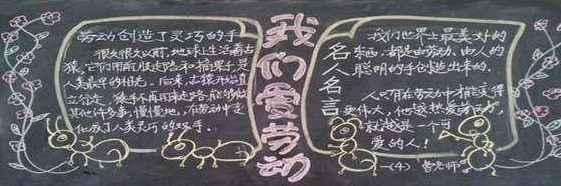 劳动创造了灵巧的手
很久很久以前,地球上活着古
猿,它们用前肢走路和摘果子,是
人类最早的祖先。后来,古猿开始直
立行走,猿手不再用来走路,能够做
其他许多事,慢慢地,在劳动中变
化成了人类灵巧的双手。
我们爱劳动
名人名言
我们世界上最美好的
东西,都是由劳动、由人的
聪明的手创造出来的。
人只有在劳动中才能变得
更伟大,他越热爱劳动,
就越是一个可
爱的人!
(4) 曹老师